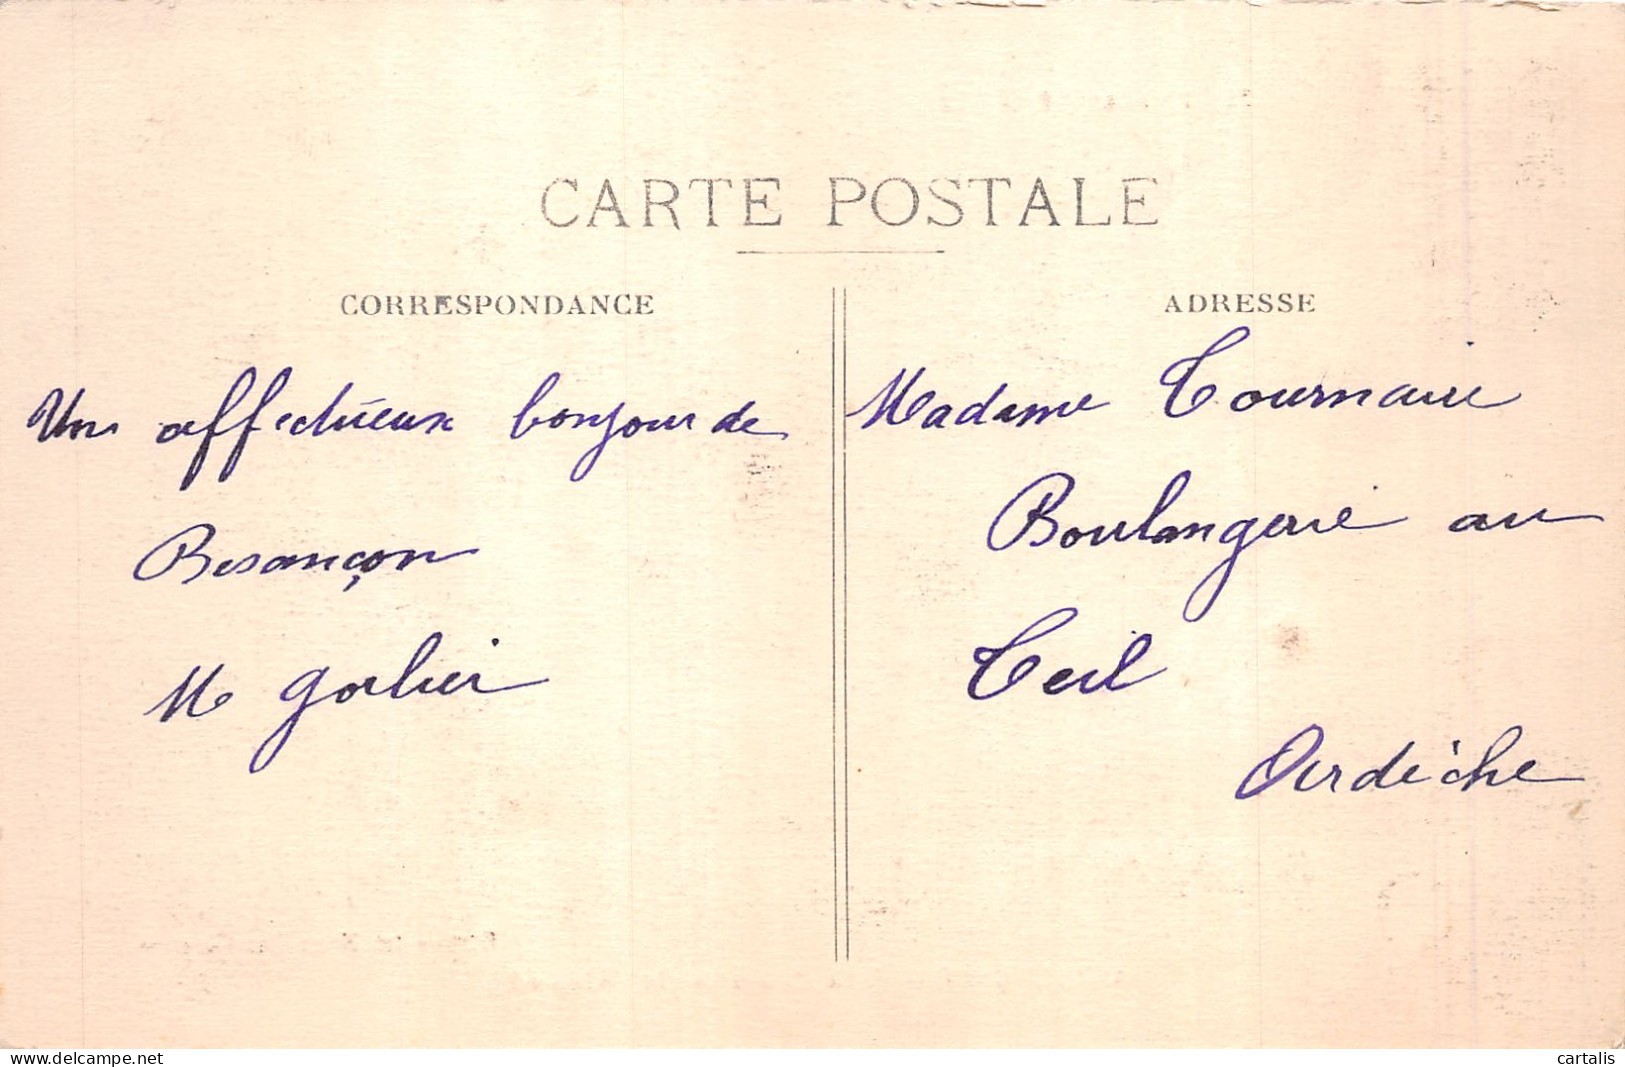 CARTE POSTALE
CORRESPONDANCE
Un affectueux bonjour de
Besançon
M Gorlier
ADRESSE
Madame Tournaire
Boulangerie au
Teil
Ardèche
www.delcampe.net
cartalis